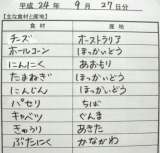 平成 24年 9月 27日分
【主な食材と産地】
食材 産地
チーズ オーストラリア
ホールコーン ほっかいどう
にんにく あおもり
たまねぎ ほっかいどう
にんじん ほっかいどう
パセリ ちば
キャベツ ぐんま
きゅうり あきた
ぶたにく かながわ